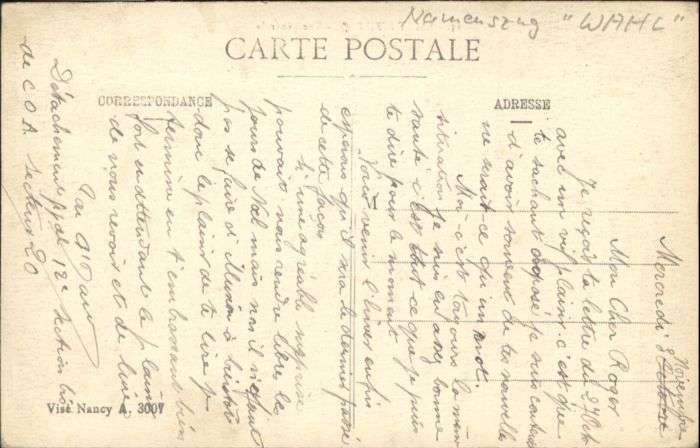 Namenszug "WAHL"
CARTE POSTALE
CORRESPONDANCE
ADRESSE
Mercredi 8 Novembre
Mon Cher Roger
Je reçois ta lettre du 27 Oct
avec un vif plaisir c'est que
te sachant exposé je suis content
d'avoir souvent de tes nouvelles
ne serait-ce qu'un mot.
Moi c'est toujours la même
situation je suis en assez bonne
santé c'est tout ce que je puis
te dire pour le moment
Voici venir l'hiver enfin
espérons qu'il sera le dernier passé
de cette façon
Si une agréable surprise
pouvait nous rendre libre les
jours de Noel mais non il ne faut
pas se faire d'illusion
donc le plaisir de te lire je
termine en t'embrassant bien
fort en attendant le plaisir
de vous revoir et de lire
Détachement 12e section
de C.O.A. secteur 20
Visé Nancy A. 3007